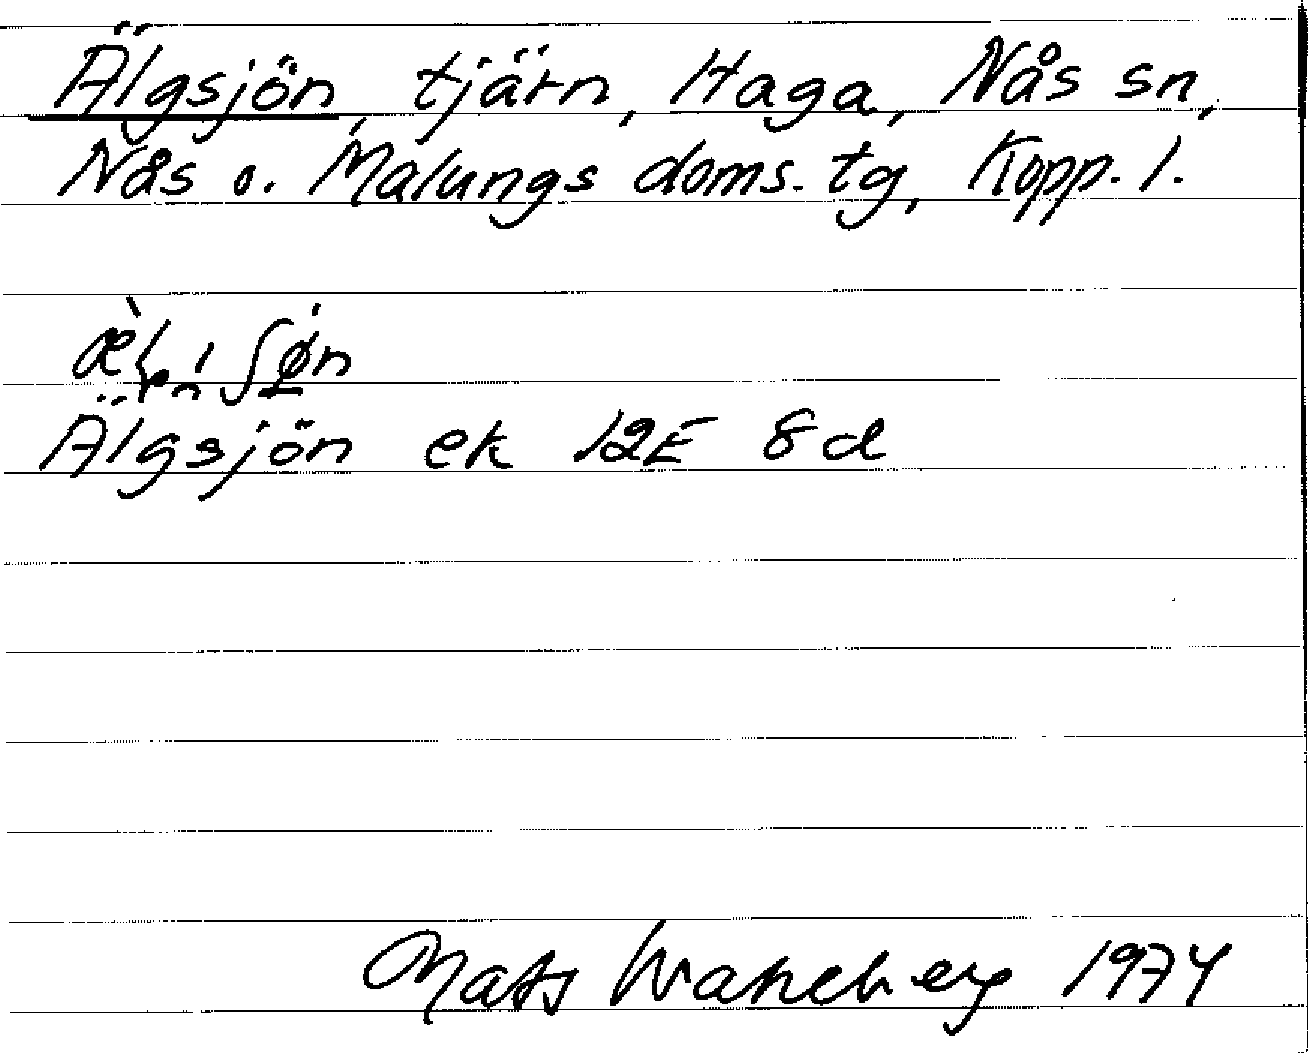 Älgsjön, tjärn, Haga, Nås sn,
Nås o. Malungs doms. tg, Kopp. l.
Älgsjön ek 12E 8d
Mats Wahlberg 1974